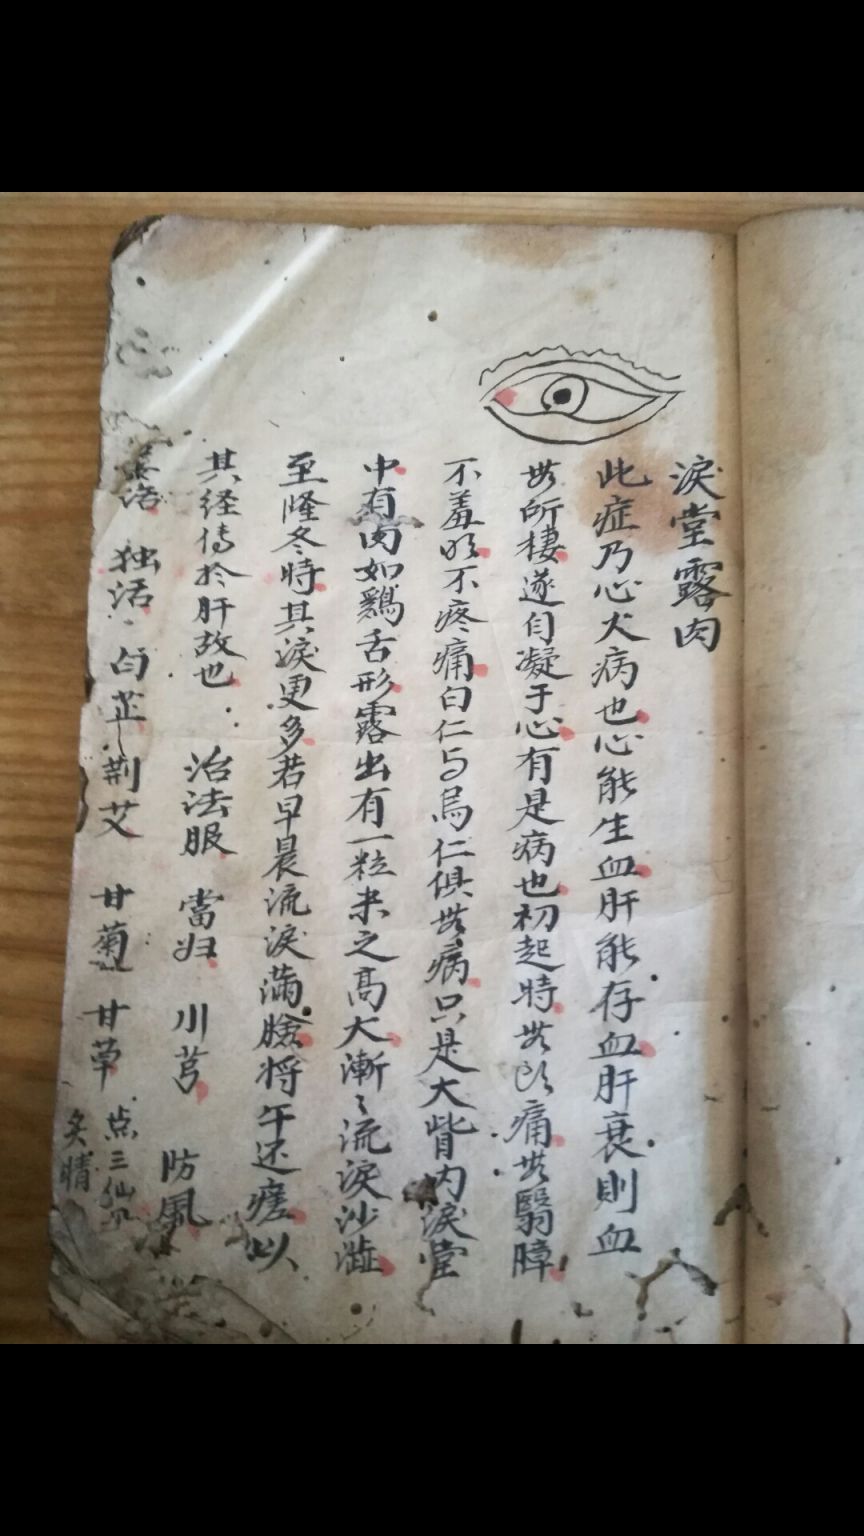 淚堂露肉
此症乃心火病也心能生血肝能存血肝衰則血
无所棲遂自凝于心有是病也初起時无的痛无翳障
不羞明不疼痛白仁与烏仁俱无病只是大眥内淚堂
中有肉如鷄舌形露出有一粒米之髙大漸〻流淚沙澁
至隆冬時其淚更多若早晨流淚滿臉将午还痊以
其経傳於肝故也 治法服 當归 川芎 防風
羌活 独活 白芷 荆艾 甘菊 甘草
点三仙